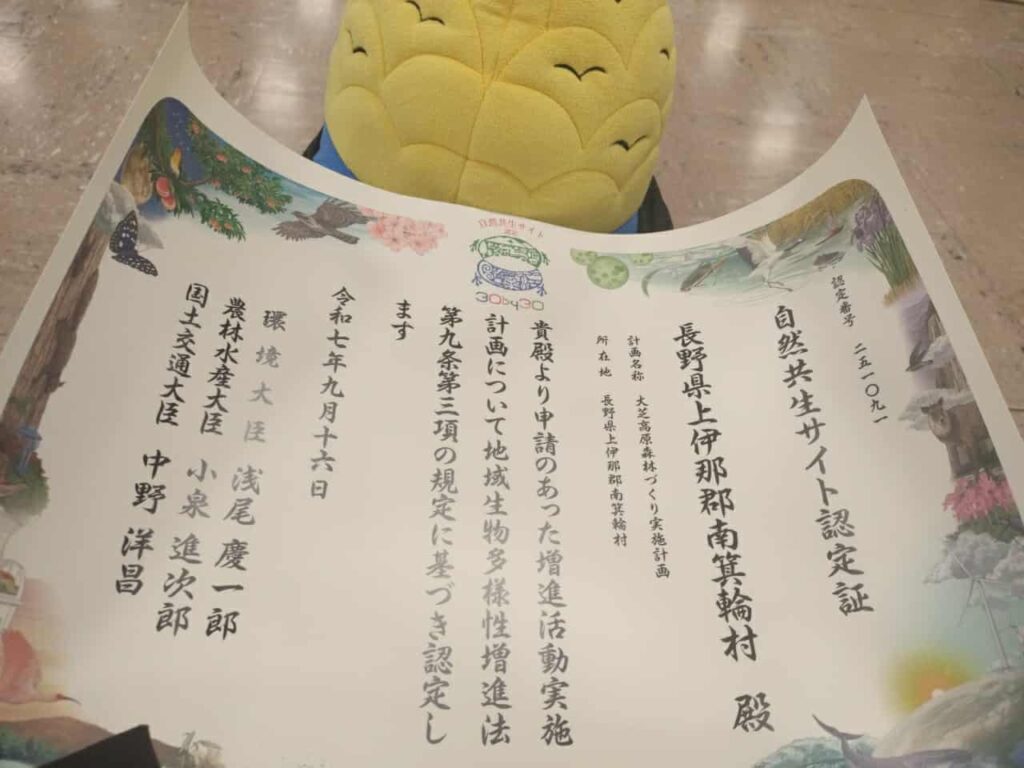 認定番号 二五一〇九一
自然共生サイト認定証
長野県上伊那郡南箕輪村 殿
計画名称 大芝高原森林づくり実施計画
所在地 長野県上伊那郡南箕輪村
自然共生サイト
認定
30by30
貴殿より申請のあった増進活動実施
計画について地域生物多様性増進法
第九条第三項の規定に基づき認定し
ます
令和七年九月十六日
環境大臣 浅尾 慶一郎
農林水産大臣 小泉 進次郎
国土交通大臣 中野 洋昌